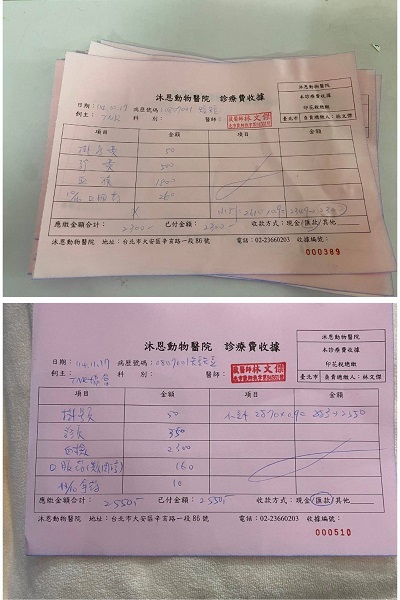 沐恩動物醫院 診療費收據
本診療費收據
印花稅總繳
臺北市 負責總繳人：林文傑
日期：114.11.17 病歷號碼：
飼主： 科 別： 醫師：
獸醫師 林文傑
項目 金額 項目 金額
掛號費 50
診費 500
260
應繳金額合計：2300 已付金額：2300 收款方式：現金/匯款/其他
沐恩動物醫院 地址：台北市大安區辛亥路一段86號 電話：02-23660203 收據編號：
000389
沐恩動物醫院 診療費收據
本診療費收據
印花稅總繳
臺北市 負責總繳人：林文傑
日期：114.11.17 病歷號碼：
飼主： 科 別： 醫師：
獸醫師 林文傑
項目 金額 項目 金額
掛號 50 小計 2870x0.9=
診費 350
2300
160
10
應繳金額合計：2550 已付金額：2550 收款方式：現金/匯款/其他
沐恩動物醫院 地址：台北市大安區辛亥路一段86號 電話：02-23660203 收據編號：
000510